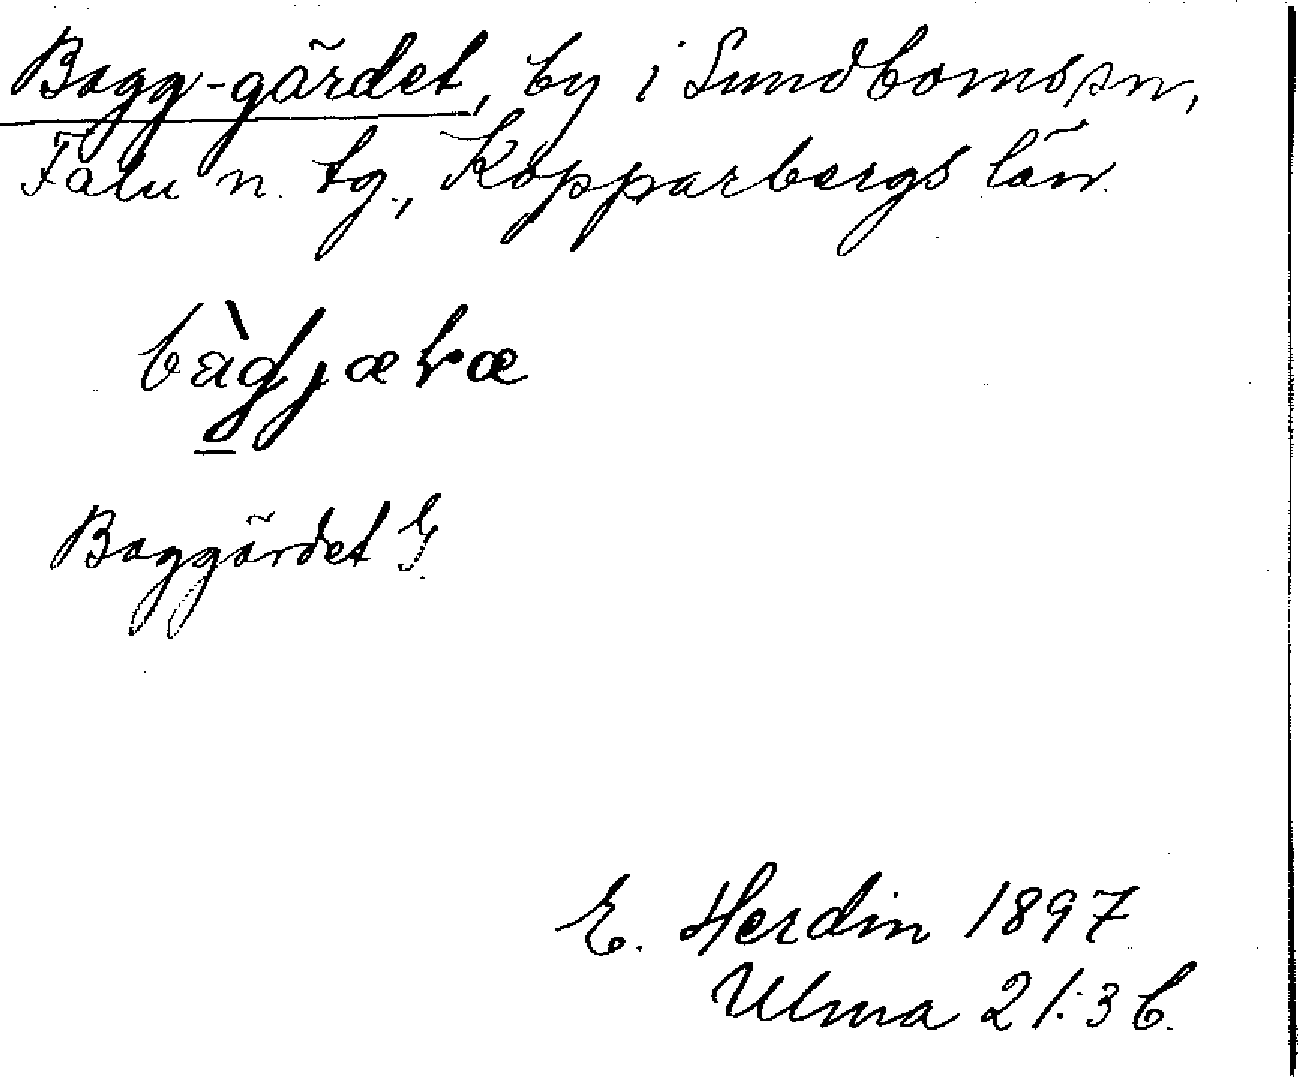 Bagg-gärdet, by i Sundborns sn,
Falu n. tg., Kopparbergs län.
Baggärdet G.
E. Herdin 1897
Ulma 21:3 b.